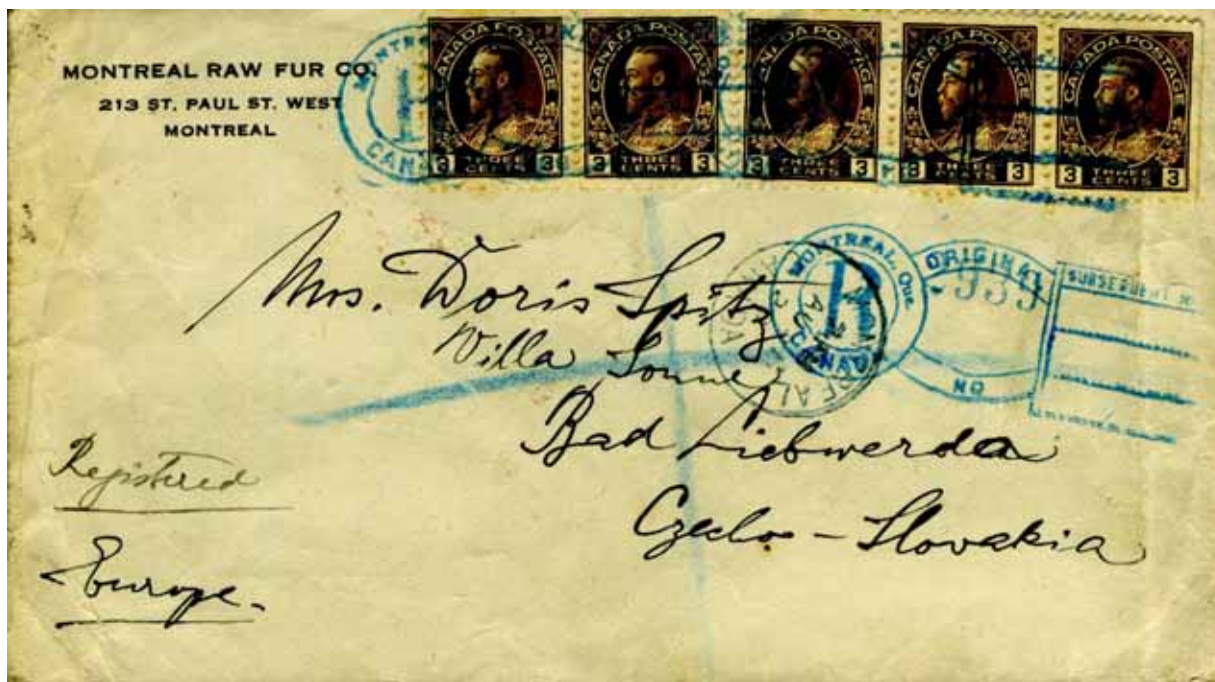 MONTREAL RAW FUR CO.
213 ST. PAUL ST. WEST
MONTREAL
CANADA POSTAGE
3 THREE CENTS 3
CANADA POSTAGE
3 THREE CENTS 3
CANADA POSTAGE
3 THREE CENTS 3
CANADA POSTAGE
3 THREE CENTS 3
CANADA POSTAGE
3 THREE CENTS 3
MONTREAL, Que.
R
CANADA
ORIGINAL
NO
SUBSEQUENT
Mrs. Doris Spitz
Villa Sonne
Bad Liebwerda
Czecho-Slovakia
Registered
Europe.